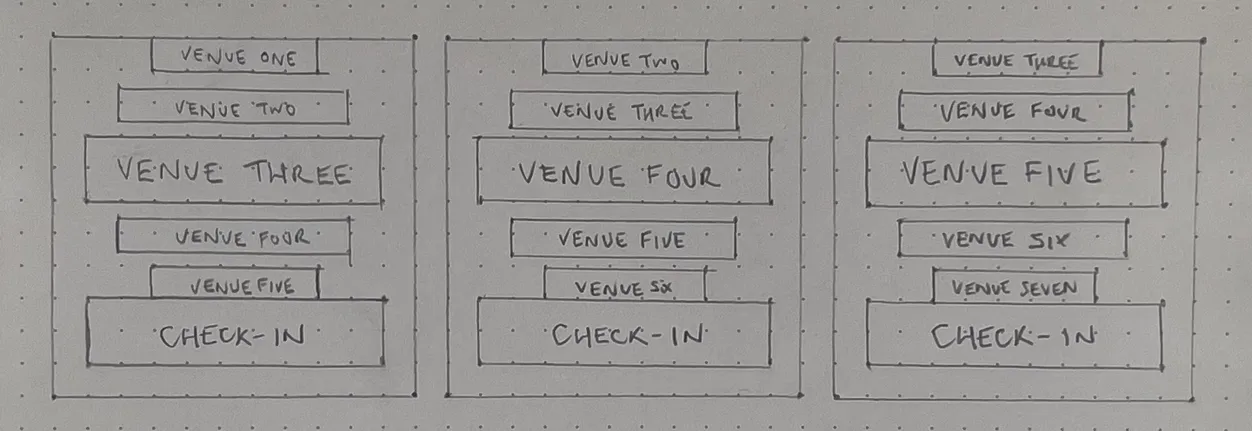 VENUE ONE
VENUE TWO
VENUE THREE
VENUE FOUR
VENUE FIVE
CHECK-IN
VENUE TWO
VENUE THREE
VENUE FOUR
VENUE FIVE
VENUE SIX
CHECK-IN
VENUE THREE
VENUE FOUR
VENUE FIVE
VENUE SIX
VENUE SEVEN
CHECK-IN